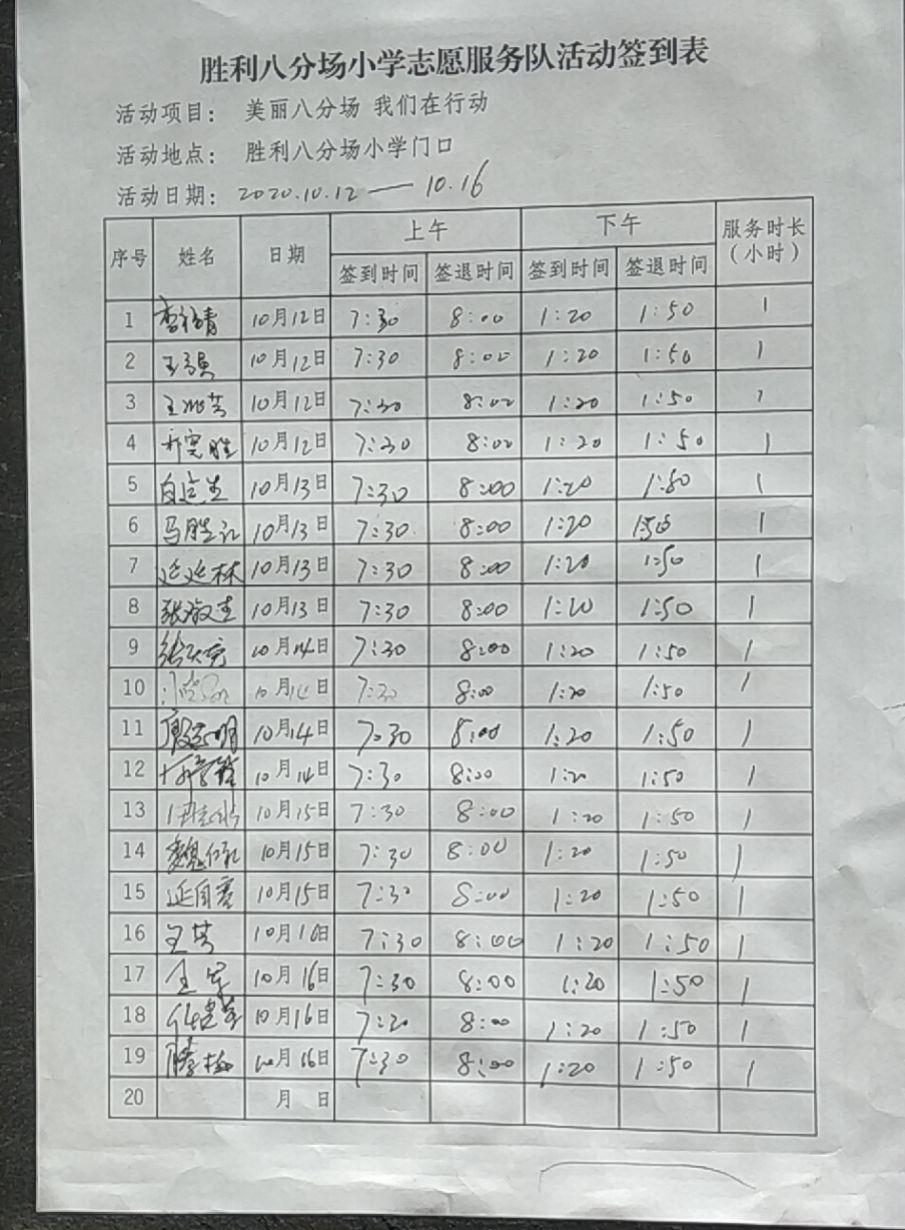 胜利八分场小学志愿服务队活动签到表
活动项目： 美丽八分场 我们在行动
活动地点： 胜利八分场小学门口
活动日期： 2020.10.12 — 10.16
序号 姓名 日期 上午 下午 服务时长（小时）
签到时间 签退时间 签到时间 签退时间
1 10月12日 7:30 8:00 1:20 1:50 1
2 王强 10月12日 7:30 8:00 1:20 1:50 1
3 10月12日 7:30 8:00 1:20 1:50 1
4 10月12日 7:30 8:00 1:20 1:50 1
5 10月13日 7:30 8:00 1:20 1:50 1
6 马胜礼 10月13日 7:30 8:00 1:20 1:50 1
7 延延林 10月13日 7:30 8:00 1:20 1:50 1
8 10月13日 7:30 8:00 1:20 1:50 1
9 10月14日 7:30 8:00 1:20 1:50 1
10 7:30 8:00 1:20 1:50 1
11 10月14日 7:30 8:00 1:20 1:50 1
12 10月14日 7:30 8:00 1:20 1:50 1
13 10月15日 7:30 8:00 1:20 1:50 1
14 10月15日 7:30 8:00 1:20 1:50 1
15 10月15日 7:30 8:00 1:20 1:50 1
16 王芳 7:30 8:00 1:20 1:50 1
17 10月16日 7:30 8:00 1:20 1:50 1
18 10月16日 7:20 8:00 1:20 1:50 1
19 滕梅 10月16日 7:30 8:00 1:20 1:50 1
20 月 日